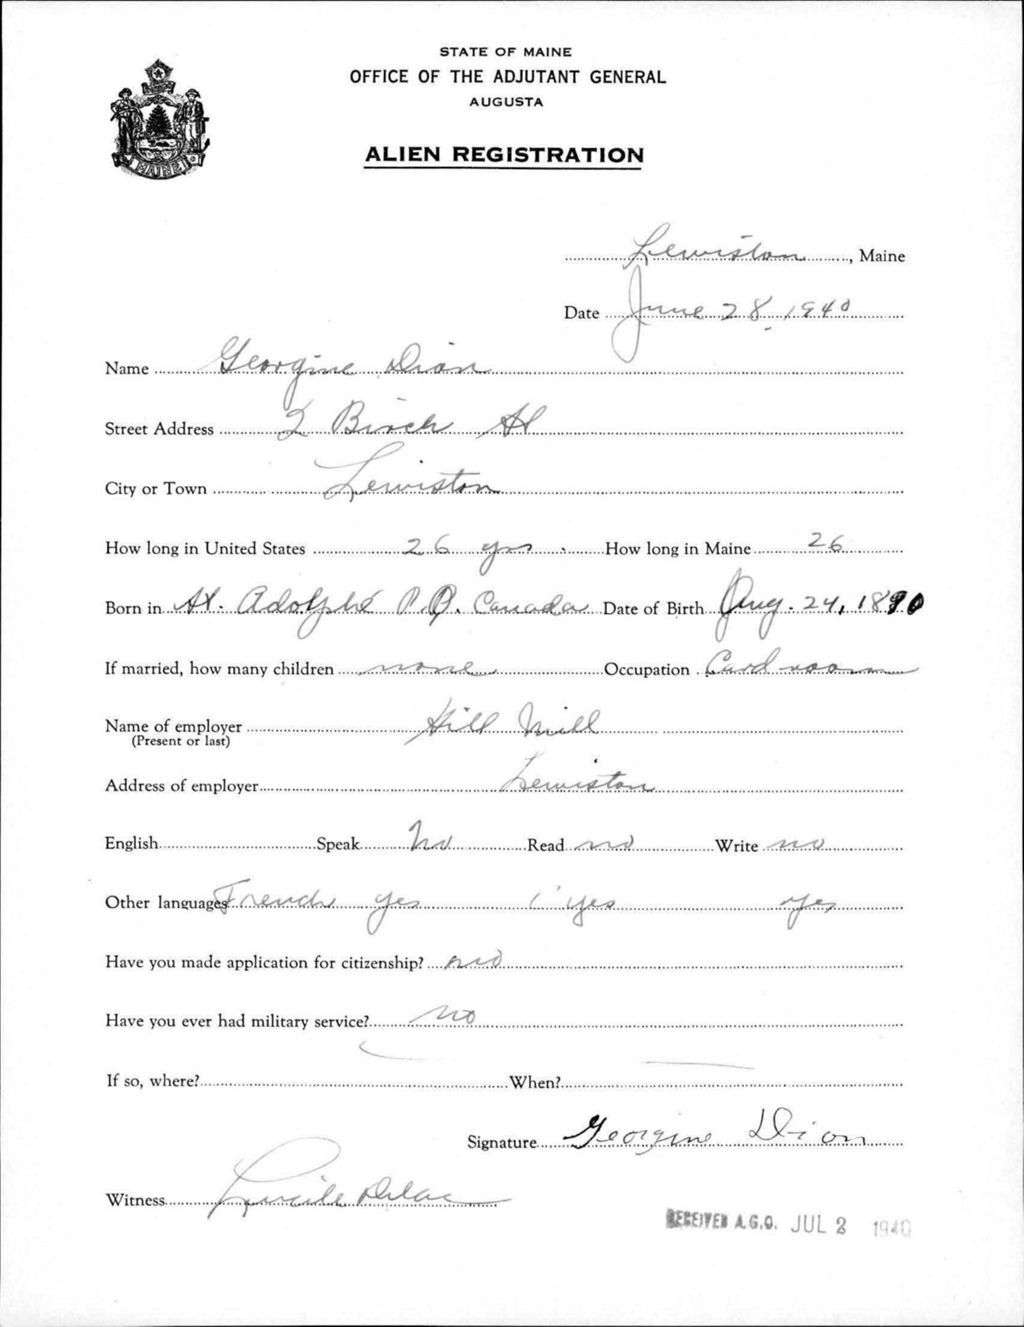 STATE OF MAINE
OFFICE OF THE ADJUTANT GENERAL
AUGUSTA
ALIEN REGISTRATION
MAINE
Lewiston, Maine
Date June 28, 1940
Name Georgine Dion
Street Address 2 Birch St
City or Town Lewiston
How long in United States 26 yrs. How long in Maine 26
Born in St. Adolphe P.Q. Canada Date of Birth Aug. 24, 1890
If married, how many children none Occupation Card room
Name of employer Hill Mill
(Present or last)
Address of employer Lewiston
English Speak No Read no Write no
Other languages French yes yes yes
Have you made application for citizenship? no
Have you ever had military service? no
If so, where? When?
Signature Georgine Dion
Witness Lucile
RECEIVED A.G.O. JUL 2 1940